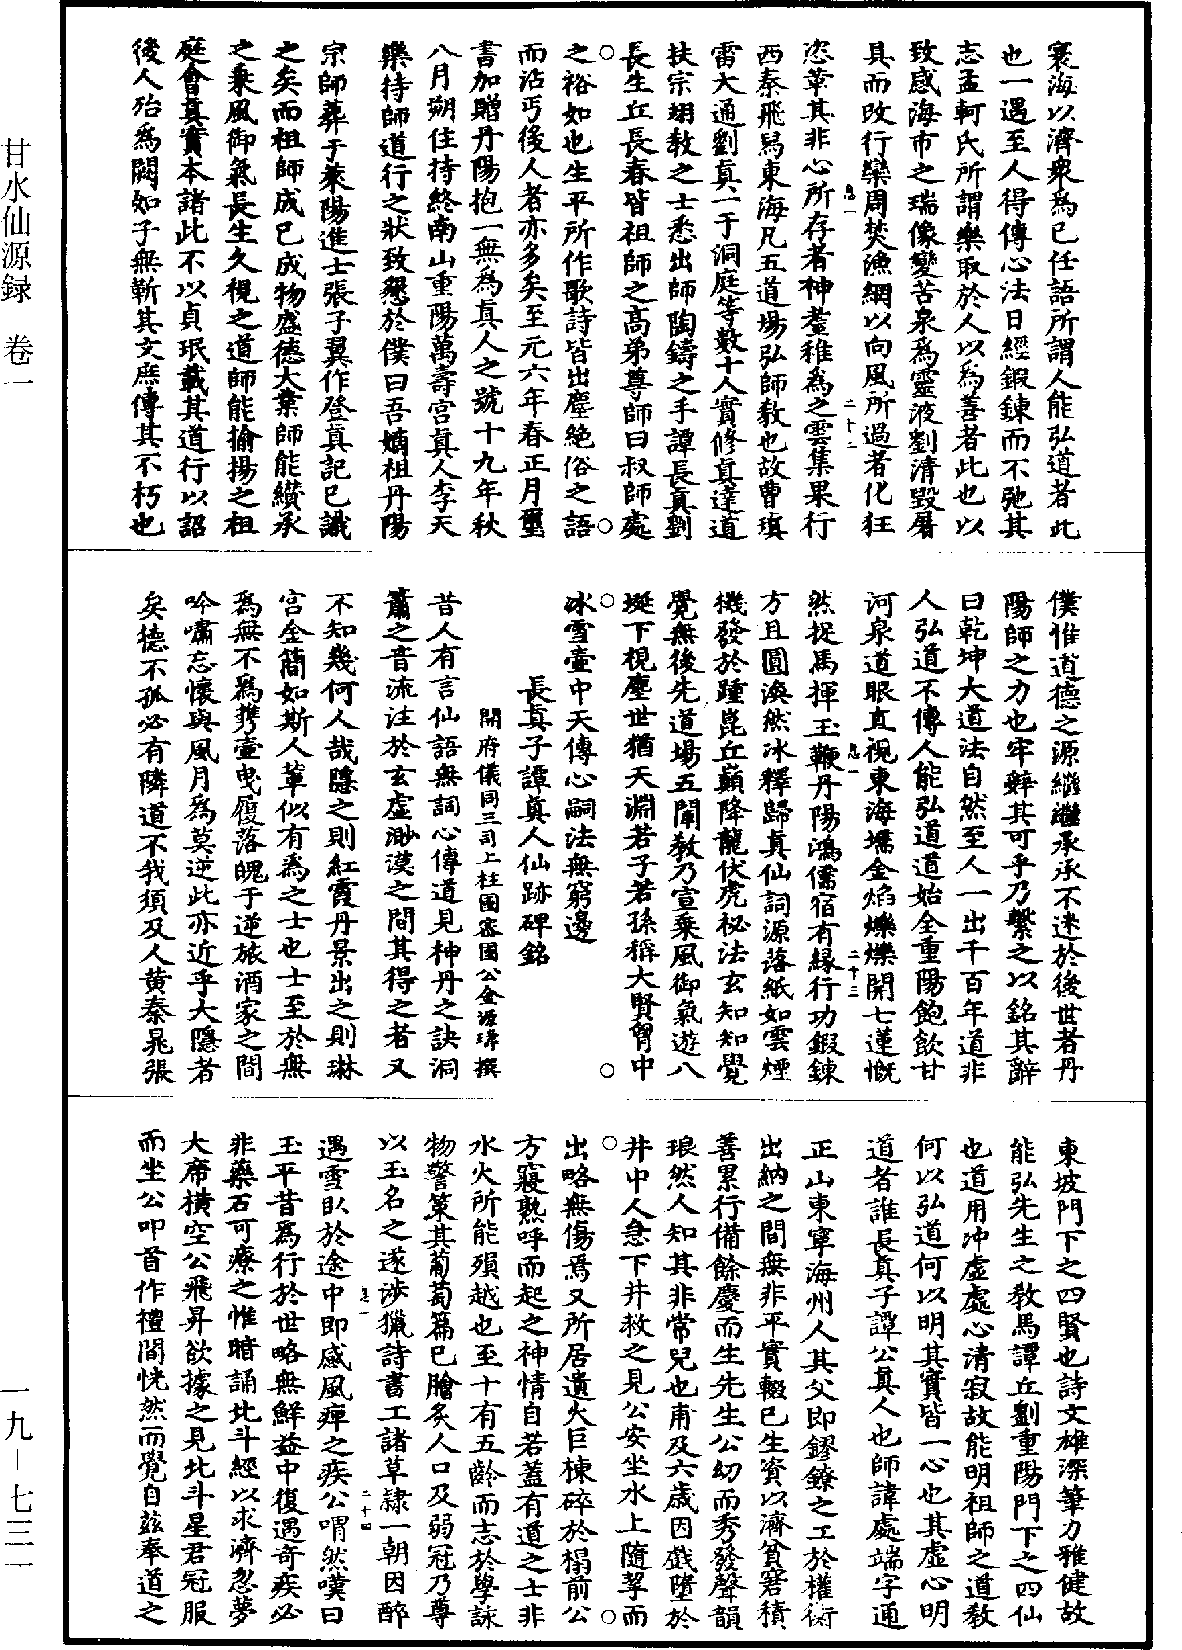 甘水仙源録　卷一
寰海以濟衆爲己任語所謂人能弘道者此
也一遇至人得傳心法日經鍜鍊而不弛其
志孟軻氏所謂樂取於人以爲善者此也以
致感海市之瑞像變苦泉爲靈液劉清毀屠
具而改行欒周焚漁網以向風所過者化狂
恣革其非心所存者神耋稚爲之雲集果行
西秦飛舄東海凡五道場弘師教也故曹瑱
雷大通劉真一于洞庭等數十人實修真達道
扶宗翊教之士悉出師陶鑄之手譚長真劉
長生丘長春皆祖師之高弟尊師曰叔師處
之裕如也生平所作歌詩皆出塵絶俗之語
而沾丐後人者亦多矣至元六年春正月璽
書加贈丹陽抱一無爲真人之號十九年秋
八月朔住持終南山重陽萬壽宮真人李天
樂持師道行之狀致懇於僕曰吾嫡祖丹陽
宗師葬于萊陽進士張子翼作登真記已識
之矣而祖師成已成物盛德大業師能纘承
之乗風御氣長生久視之道師能揄揚之祖
庭會真實本諸此不以貞珉載其道行以詔
後人殆爲闕如子無靳其文庶傳其不朽也
僕惟道德之源繼繼承承不迷於後世者丹
陽師之力也牢辭其可乎乃繫之以銘其辭
曰乾坤大道法自然至人一出千百年道非
人弘道不傳人能弘道道始全重陽飽飲甘
河泉道眼直視東海壖金焰爍爍開七蓮慨
然捉馬揮玉鞭丹陽鴻儒宿有緣行功鍜鍊
方且圓渙然冰釋歸真仙詞源落紙如雲煙
機發於踵崑丘巔降龍伏虎祕法玄知知覺
覺無後先道場五闡教乃宣乗風御氣遊八
埏下視塵世猶天淵若子若孫稱大賢胷中
冰雪壷中天傳心嗣法無窮邊
長真子譚真人仙跡碑銘
開府儀同三司上柱國密國公金源璹撰
昔人有言仙語無詞心傳道見神丹之訣洞
簫之音流注於玄虛渺漠之間其得之者又
不知幾何人哉隱之則紅霞丹景出之則琳
宮金簡如斯人輩似有爲之士也士至於無
爲無不爲携壷曳履落魄于逆旅酒家之間
吟嘯忘懷與風月爲莫逆此亦近乎大隱者
矣德不孤必有隣道不我須及人黄秦晁張
東坡門下之四賢也詩文雄深筆力雅健故
能弘先生之教馬譚丘劉重陽門下之四仙
也道用冲虛虛心清寂故能明祖師之道教
何以弘道何以明其實皆一心也其虛心明
道者誰長真子譚公真人也師諱處端字通
正山東寧海州人其父即鏐鐐之工於權衡
出納之間無非平實輟已生資以濟貧窘積
善累行備餘慶而生先生公幼而秀發聲韻
琅然人知其非常兒也甫及六歳因戲墮於
井中人急下井救之見公安坐水上隨挈而
出略無傷焉又所居遺火巨棟碎於榻前公
方寢熟呼而起之神情自若蓋有道之士非
水火所能殞越也至十有五齡而志於學詠
物警策其葡萄篇已膾炙人口及弱冠乃尊
以玉名之遂涉獵詩書工諸草隷一朝因醉
遇雪臥於途中即感風痺之疾公喟然嘆曰
玉平昔爲行於世略無鮮益中復遇奇疾必
非藥石可療之惟暗誦北斗經以求濟忽夢
大席橫空公飛昇欲據之見北斗星君冠服
而坐公叩首作禮間恍然而覺自玆奉道之
息一
二十二
息一
二十三
息一
二十四
一九－七三一